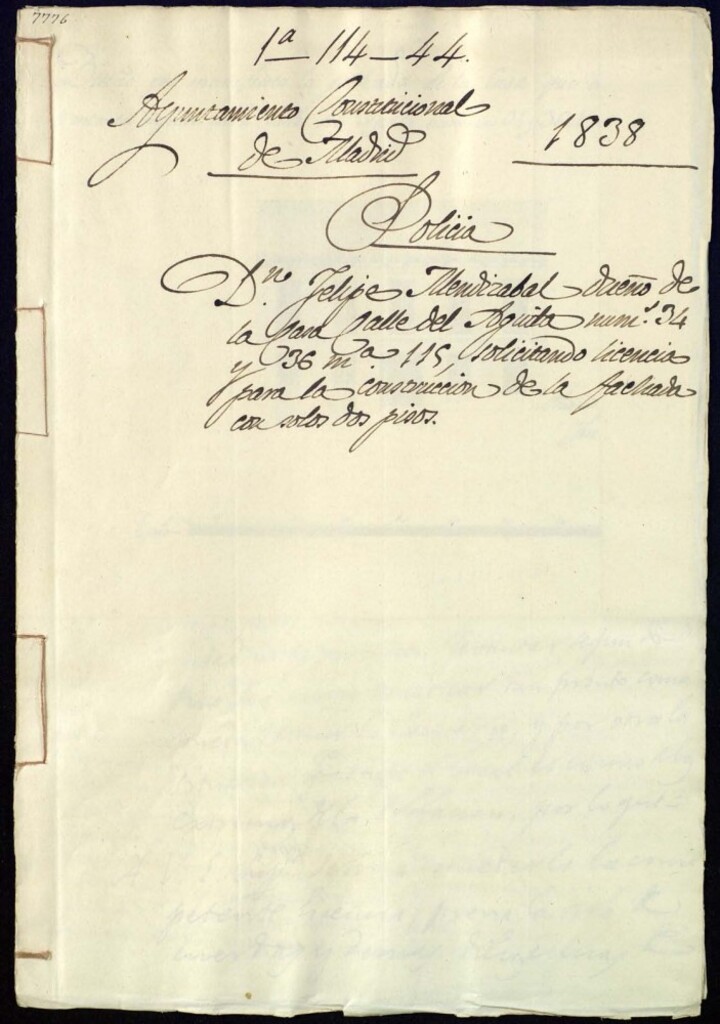 7776
1ª—114—44.
Ayuntamiento Constitucional
de Madrid
1838
Policia
Dn. Felipe Mendizabal dueño de
la Casa Calle del Aguila num.s 34
y 36 m.a 115, solicitando licencia
para la construccion de la fachada
con solos dos pisos.